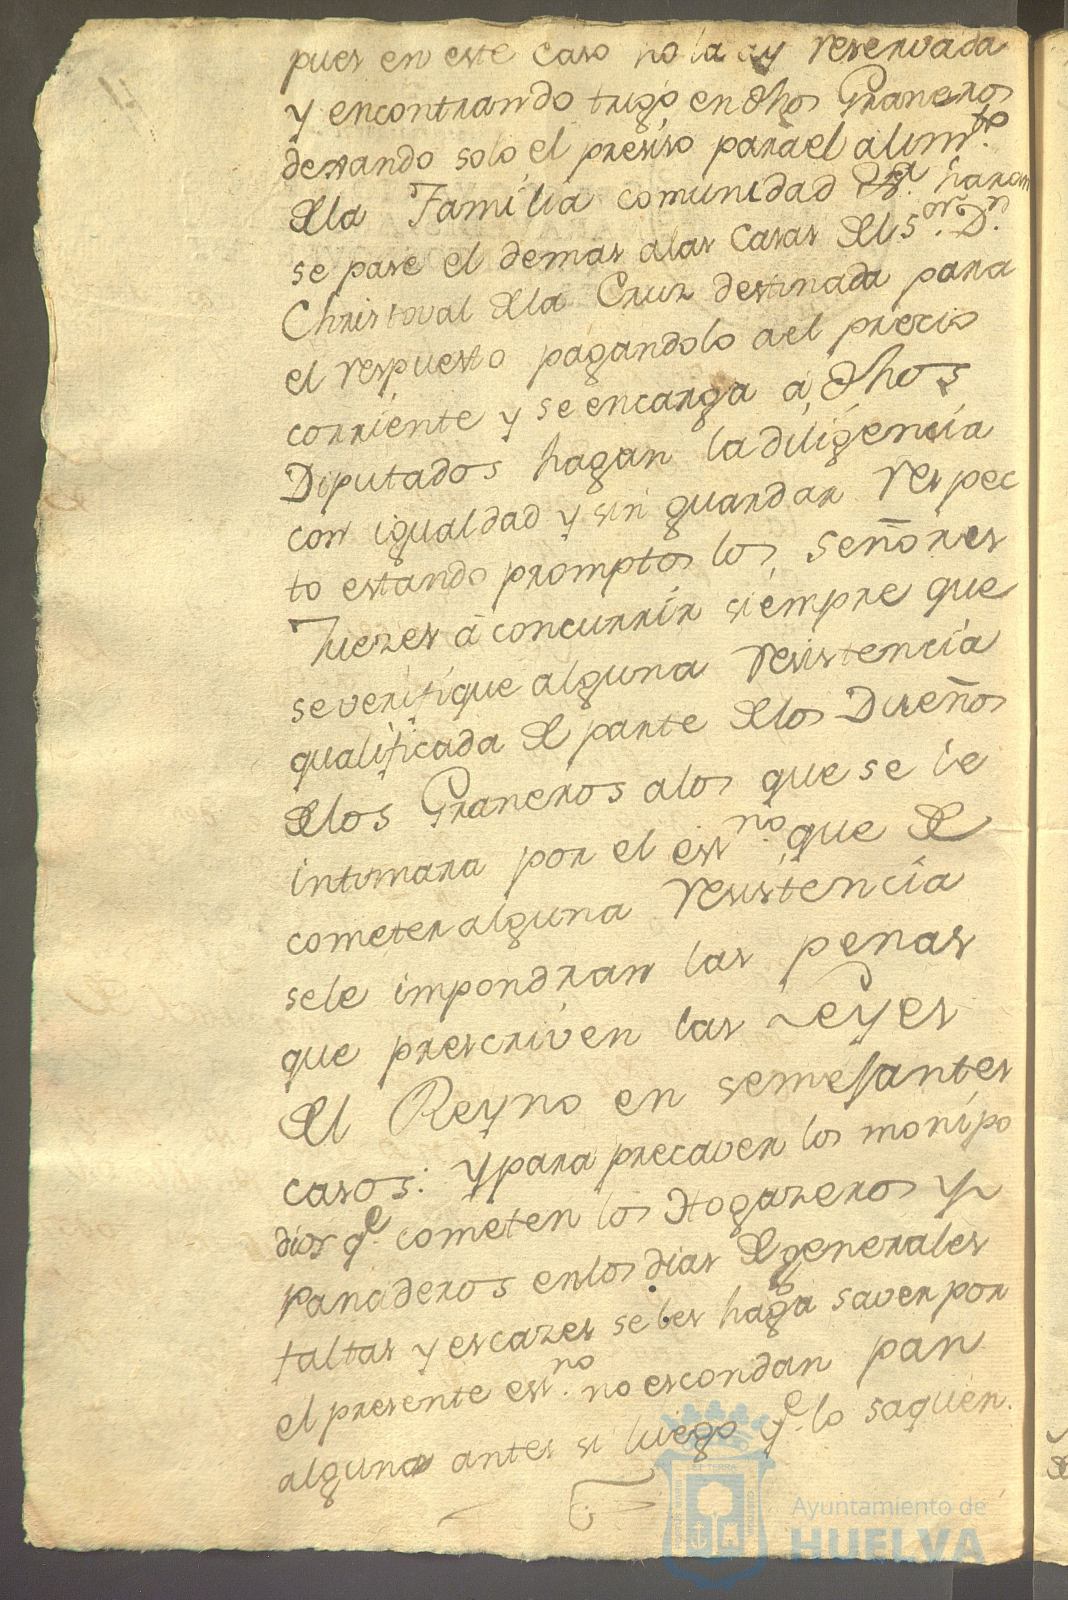 pues en este caso no la ay reservada
y encontrando trigo en dhos Graneros
dexando solo el presiso para el alimto.
dela Familia comunidad haran
se pase el demas alas Casas del Sor. Dn.
Christoval dela Cruz destinada para
el respuesto pagandolo a el precio
corriente y se encarga à dhos
Diputados hagan la diligencia
con igualdad y sin guardar respec
to estando promptos los Señores
Juezes à concurrir siempre que
se verifique alguna resistencia
qualificada de parte delos Dueños
delos Graneros alos que se le
intimara por el essno. que de
cometer alguna resistencia
sele impondran las penas
que prescriven las Leyes
del Reyno en semejantes
casos: y para precaver los monipo
dios qe. cometen los Hogazeros y
Panaderos enlos dias de generales
faltas y escazes se les haga saver por
el presente essno. no escondan pan
alguno antes si luego qe. lo saquen
Ayuntamiento de
HUELVA